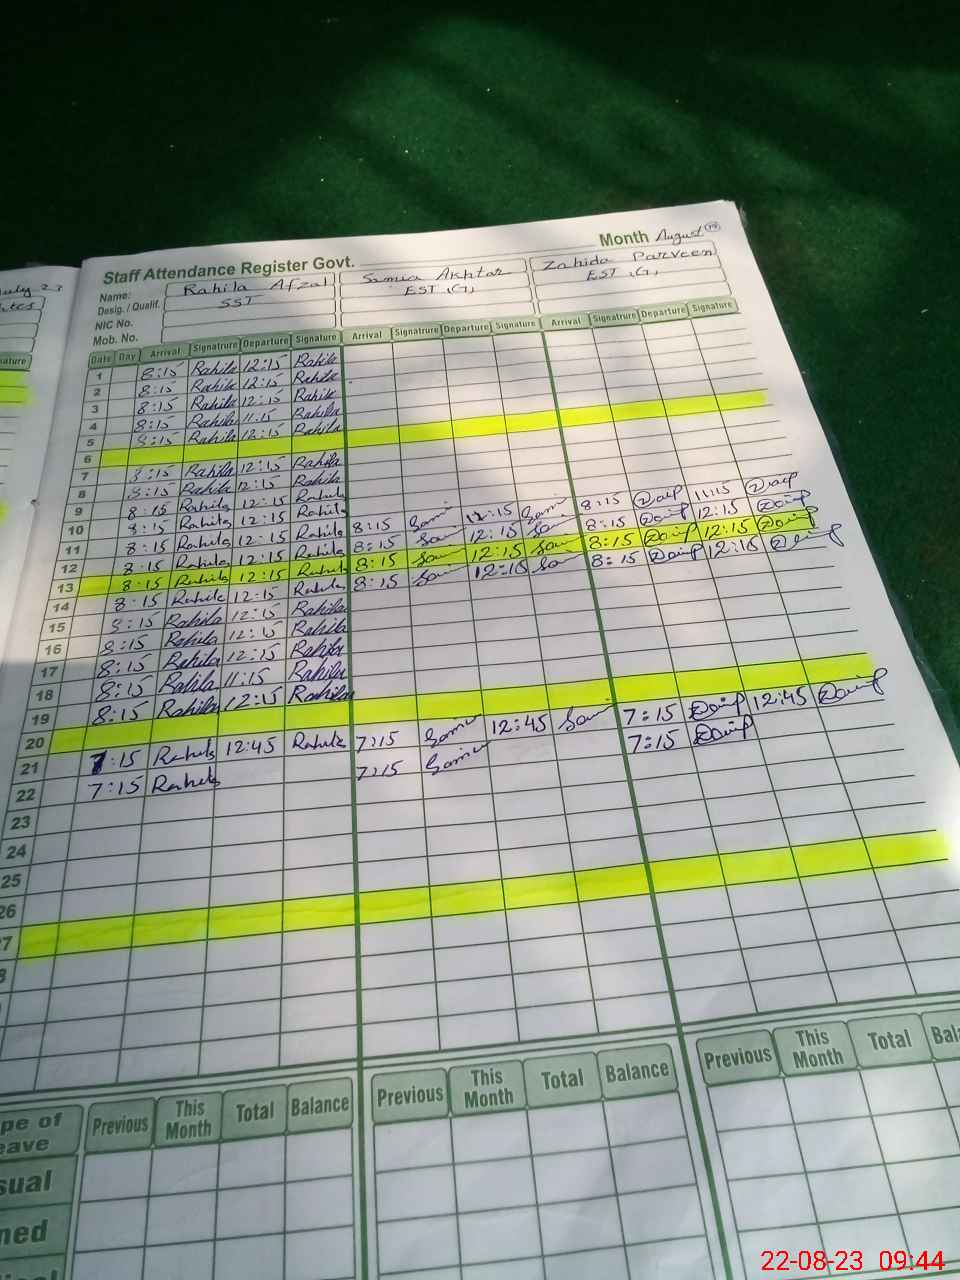 Month August
Staff Attendance Register Govt.
Name: Rahila Afzal Samia Akhtar Zahida Parveen
Desig. / Qualif. SST EST (G) EST (G)
NIC No.
Mob. No.
Date Day Arrival Signatrure Departure Signature Arrival Signatrure Departure Signature Arrival Signatrure Departure Signature
1 8:15 Rahila 12:15 Rahila
2 8:15 Rahila 12:15 Rahila
3 8:15 Rahila 12:15 Rahila
4 8:15 Rahila 11:15 Rahila
5 8:15 Rahila 12:15 Rahila
6
7 8:15 Rahila 12:15 Rahila
8 8:15 Rahila 12:15 Rahila
9 8:15 Rahila 12:15 Rahila
10 8:15 Rahila 12:15 Rahila
11 8:15 Rahila 12:15 Rahila 8:15 8:15 11:15
12 8:15 Rahila 12:15 Rahila 8:15 12:15 8:15 12:15
13 8:15 Rahila 12:15 Rahila 8:15 12:15 8:15 12:15
14 8:15 Rahila 12:15 Rahila 8:15 12:15 8:15 12:15
15 8:15 Rahila 12:15 Rahila
16 8:15 Rahila 12:15 Rahila
17 8:15 Rahila 12:15 Rahila
18 8:15 Rahila 11:15 Rahila
19 8:15 Rahila 12:15 Rahila
20
21 7:15 Rahila 12:45 Rahila 7:15 12:45 7:15 12:45
22 7:15 Rahila 7:15 7:15
23
24
25
26
7
Previous This Month Total Balance Previous This Month Total Balance Previous This Month Total
22-08-23 09:44